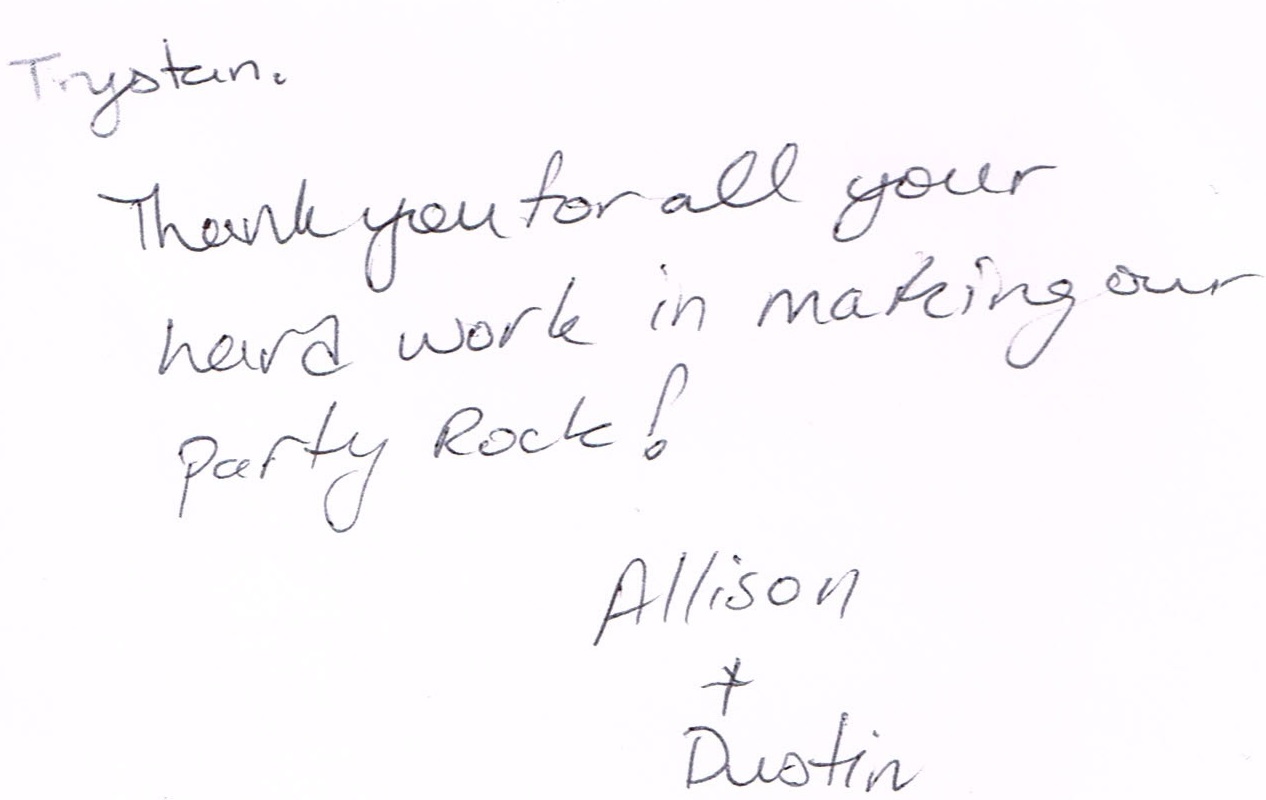 Trystan.
Thank you for all your
hard work in making our
party Rock!
Allison
+
Dustin